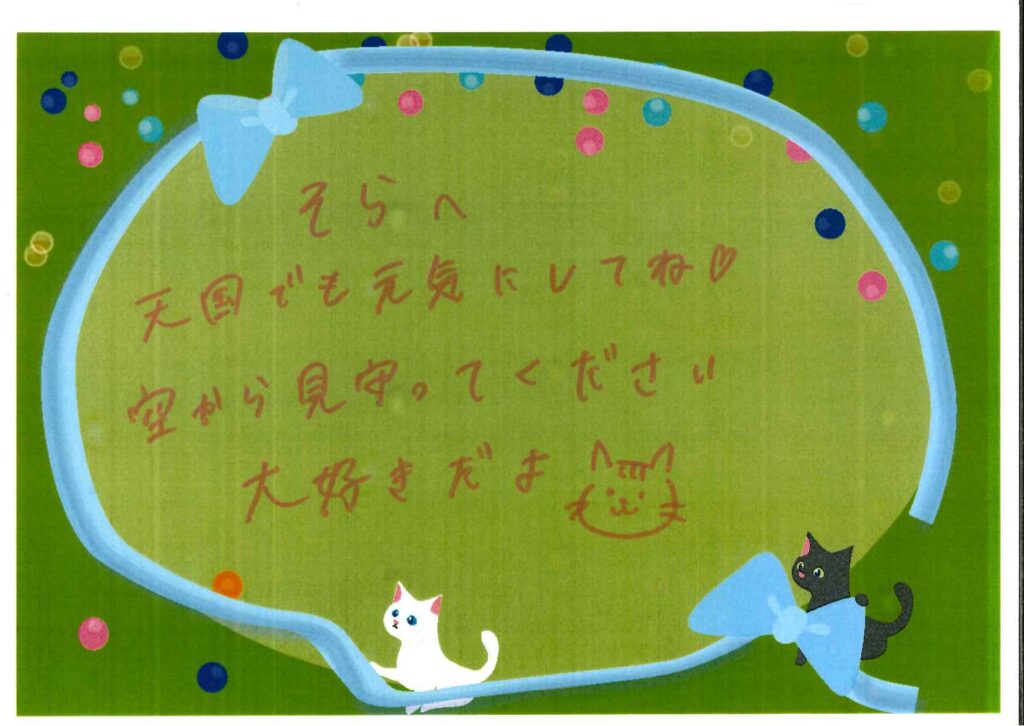 そらへ
天国でも元気にしてね♡
空から見守ってください
大好きだよ